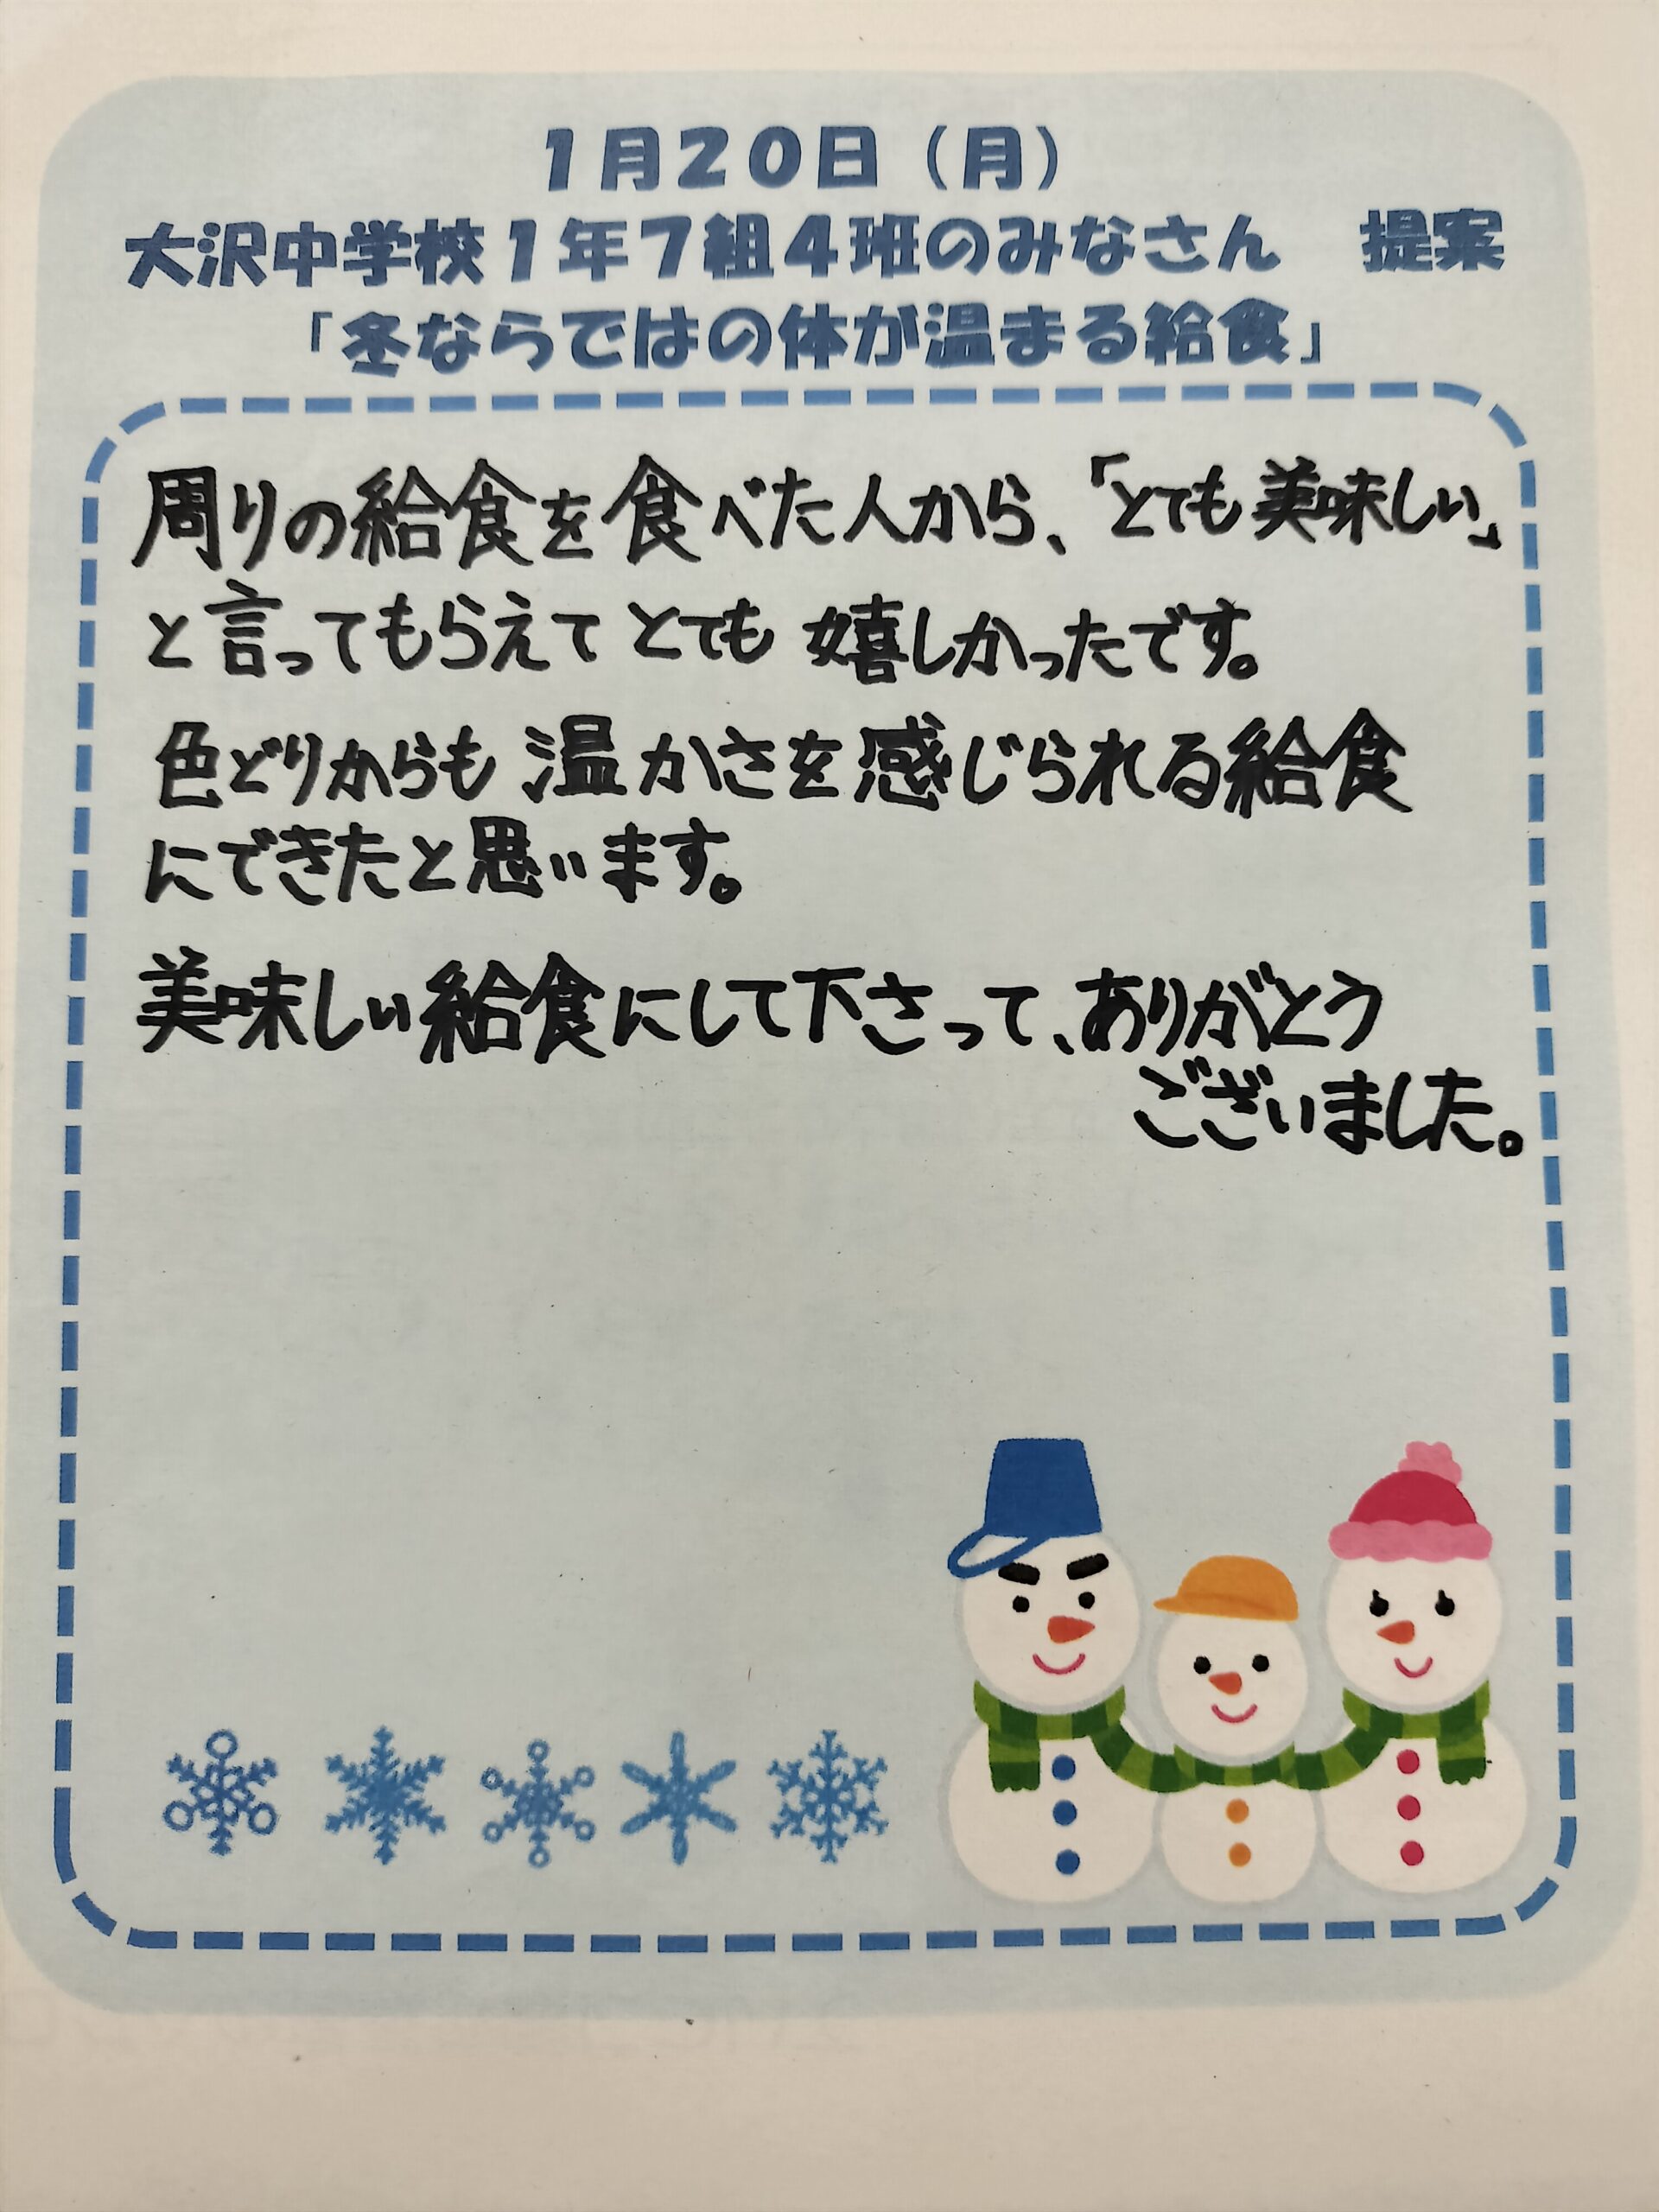 1月20日（月）
大沢中学校1年7組4班のみなさん　提案
「冬ならではの体が温まる給食」
周りの給食を食べた人から、「とても美味しい」
と言ってもらえてとても嬉しかったです。
色どりからも温かさを感じられる給食
にできたと思います。
美味しい給食にして下さって、ありがとう
ございました。